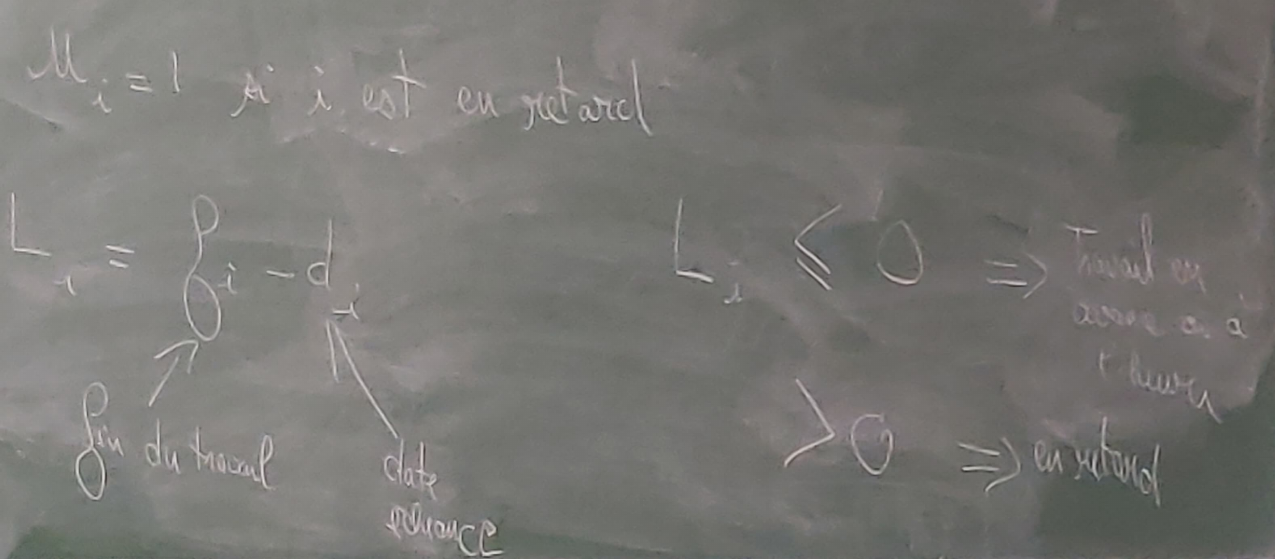 M_i = 1 si i est en retard
L_i = f_i - d_i
fin du travail
date
echeance
L_i ≤ 0 => Travail en
avance ou à
l'heure
> 0 => en retard